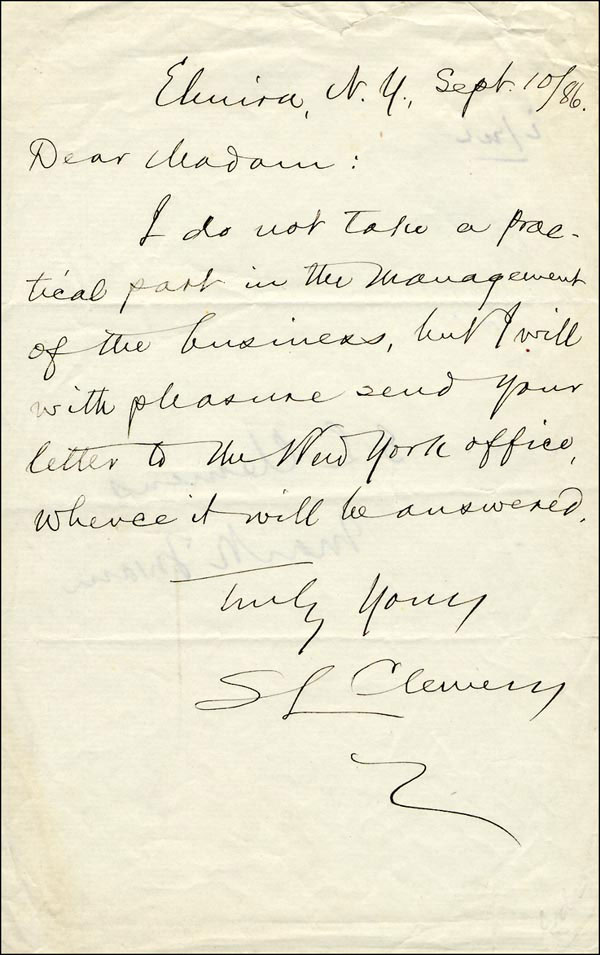 Elmira, N. Y., Sept. 10/86.
Dear Madam:
I do not take a prac-
tical part in the management
of the business, but I will
with pleasure send your
letter to the New York office,
whence it will be answered.
Truly Yours
SL Clemens
S L Clemens
Mark Twain